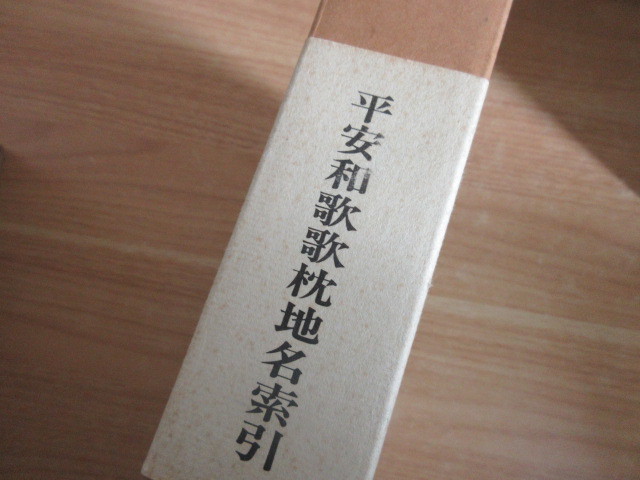 平安和歌歌枕地名索引